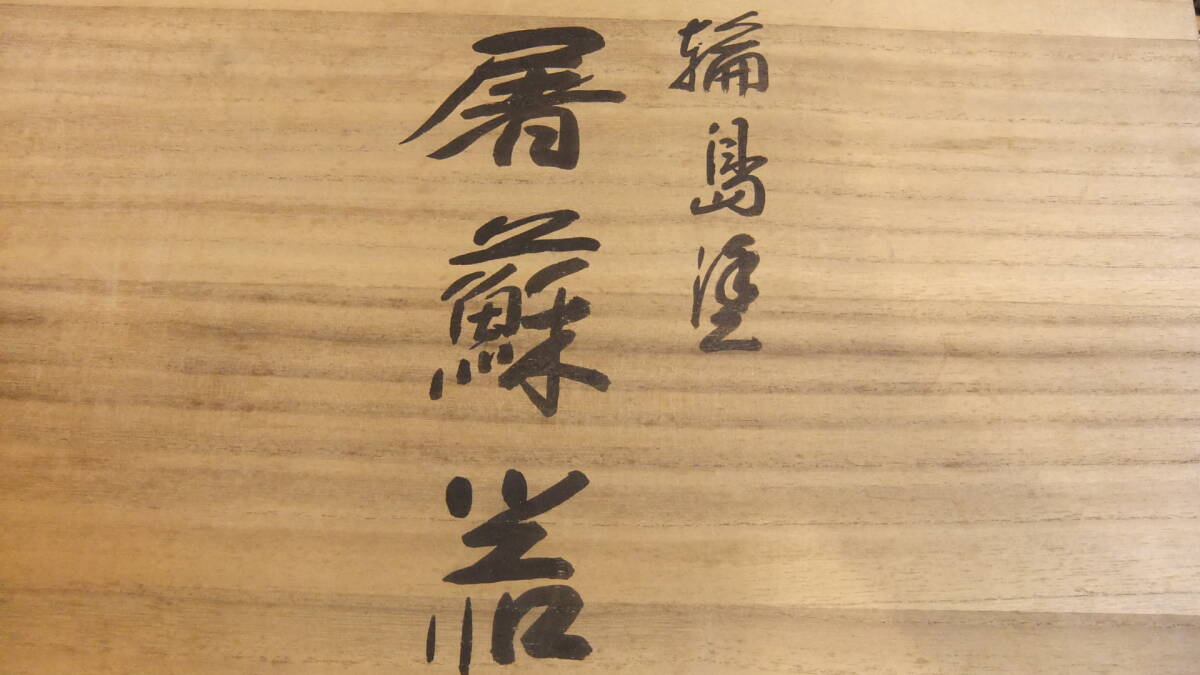 輪島塗
屠蘇器